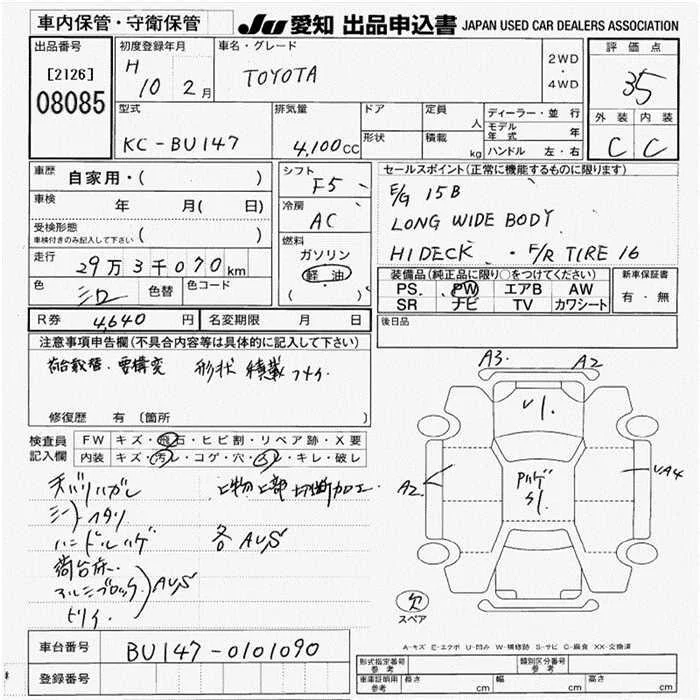 車内保管・守衛保管 JU 愛知 出品申込書 JAPAN USED CAR DEALERS ASSOCIATION
出品番号 初度登録年月 車名・グレード 評価点
[2126] H 10 2月 TOYOTA 2WD・4WD 35
08085
型式 排気量 ドア 定員 人 ディーラー・並行 外装 内装
KC-BU147 4,100CC 形状 積載 kg モデル年式 年 C C
ハンドル 左・右
車歴 自家用・( ) シフト F5 セールスポイント(正常に機能するものに限ります)
車検 年 月( 日) 冷房 AC E/G 15B
受検形態 車検付きのみ記入して下さい ( ) LONG WIDE BODY
燃料 ガソリン HIDECK ・F/R TIRE 16
走行 29万3千070km 軽油
色 シロ 色替 色コード (・ )
装備品(純正品に限り○をつけてください) 新車保証書
PS. PW エアB AW 有・無
SR ナビ TV カワシート
R券 4,640 円 名変期限 月 日 後日品
注意事項申告欄(不具合内容等は具体的に記入して下さい)
荷台載替・要構変 形状 積載
修復歴 有 〔箇所 〕
検査員記入欄 FW キズ・飛石・ヒビ割・リペア跡・X要
内装 キズ・汚レ・コゲ・穴・スレ・キレ・破レ
天バリハガレ 上物上部切断加工
シートヘタリ
ハンドルハゲ 各AUS
荷台床
アルミブロック AUS
トリイ
A3. A2
U1.
A2 Pハゲ S1. UA4
欠
スペア
A-キズ E-エクボ U-凹み W-補修跡 S-サビ C-腐食 XX-交換済
車台番号 BU147-0101090
登録番号
形式指定番号 参考 類別区分番号 参考
車庫証明用 参考 長さ cm 幅 cm 高さ cm